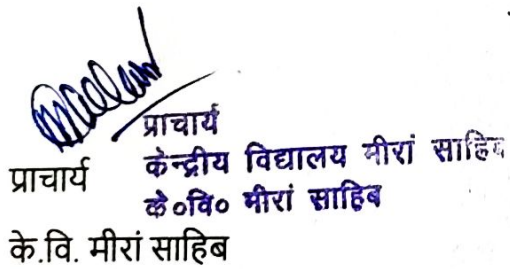 प्राचार्य
केन्द्रीय विद्यालय मीरां साहिब
के०वि० मीरां साहिब
प्राचार्य
के.वि. मीरां साहिब